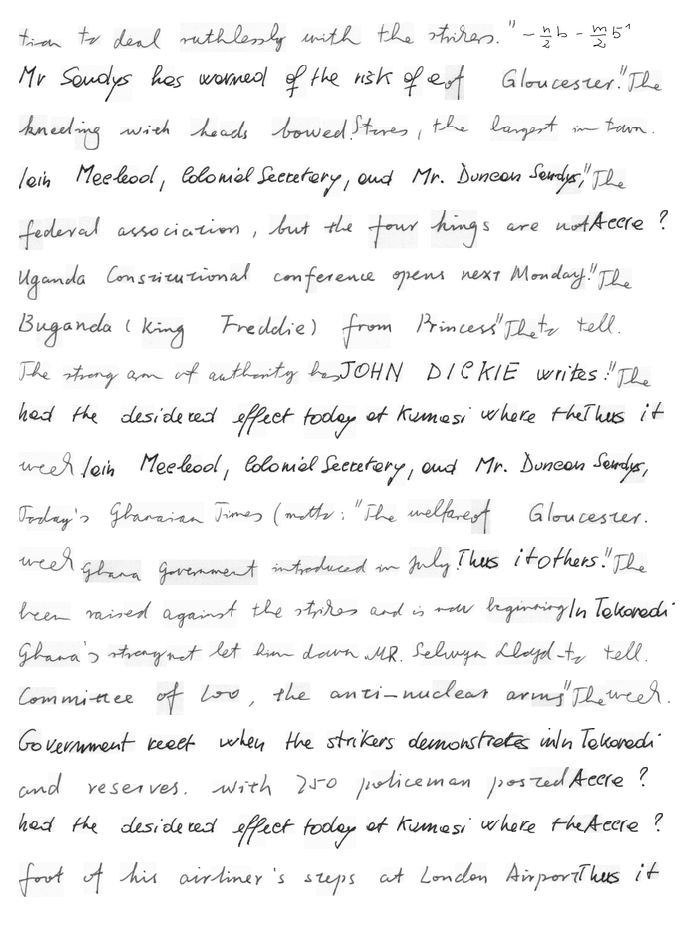 tion to deal ruthlessly with the strikes." - n/2 b - m/2 b¹
Mr Sandys has warned of the risk of e of Gloucester."The
kneeling with heads bowed! Stores, the largest in town.
Iain Macleod, Colonial Secretary, and Mr. Duncan Sandys,"The
federal association, but the four kings are not Accra ?
Uganda Constitutional conference opens next Monday."The
Buganda (King Freddie) from Princess"The to tell.
The strong arm of authority has JOHN DICKIE writes:"The
had the desidered effect today at Kumasi where the Thus it
week Iain Macleod, Colonial Secretary, and Mr. Duncan Sandys,
Today's Ghanaian Times (motto: "The welfare of Gloucester.
week Ghana government introduced in July. Thus it others."The
been raised against the strikes and is now beginning In Takoradi
Ghana's strong not let him down MR. Selwyn Lloyd - to tell.
Committee of 100, the anti-nuclear arms"The week.
Government react when the strikers demonstrates in In Takoradi
and reserves. with 250 policeman posted Accra ?
had the desidered effect today at Kumasi where the Accra ?
foot of his airliner's steps at London Airport Thus it